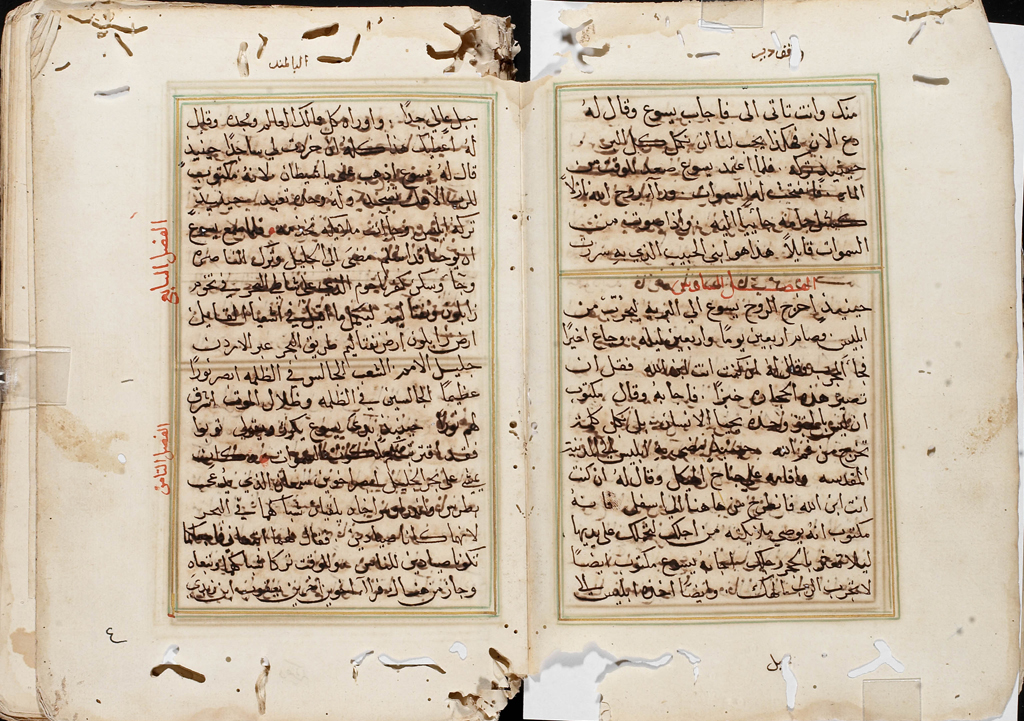 وقف دير
منك وانت تاتى الى فاجاب يسوع وقال له
دع الان فهكذا يجب لنا ان نكمل كل البر
حينيد تركه فلما اعتمد يسوع صعد للوقت من
الما فانفتحت له السموات وراى روح الله نازلاً
كـ حمامه جائياً اليه واذا صوت من
السموات قايلاً هذا هو ابنى الحبيب الذي به سررت
الفصل السادس
حينيد اخرج الروح يسوع الى البريه ليجرب من
ابليس فصام اربعين يوماً واربعين ليله وجاع اخيراً
فجا المجرب وقال له ان كنت انت ابن الله فقل ان
تصير هذه الحجاره خبزاً فاجابه وقال مكتوب
ان ليس بالخبز وحده يحيا الانسان بل بكل كلمة
تخرج من فم الله حينيد مضى به ابليس الى المدينة
المقدسه واقامه على جناح الهيكل وقال له ان كنت
انت ابن الله فانطرح من هاهنا الى اسفل فانه
مكتوب انه يوصى ملايكته من اجلك لتحملك على ايديها
ليلا تعثر بالحجر رجلك اجابه يسوع مكتوب ايضاً
لا تجرب الرب الهك وايضاً اخذه ابليس الى
البلمند
جبل عالى جداً واوراه كل ممالك العالم ومجده وقال
له اعطيك هذا كله ان خررت لي ساجداً حينيد
قال له يسوع اذهب عنى يا شيطان لانه مكتوب
للرب الاهك تسجد وله وحده تعبد حينيد
تركه ابليس وجات ملايكه تخدمه فلما سمع يسوع
ان يوحنا قد اسلم مضى الى الجليل وترك الناصره
وجا وسكن كفرناحوم التي على شاطى البحر في تخوم
زابلون ونفتاليم ليكمل ما قيل في اشعيا القايل
ارض زابلون ارض نفتاليم طريق البحر عبر الاردن
جليل الامم الشعب الجالس في الظلمه ابصر نوراً
عظيماً الجالسين في الظلمه وظلال الموت اشرق
لهم نور حينيد بدى يسوع يكرز ويقول توبوا
فقد اقتربت ملكوت السموات
يمشي على بحر الجليل ابصر اخوين سمعان الذي يدعى
بطرس واندراوس اخاه يلقيان شباكهما في البحر
لانهما كانا صيادين فقال لهما اتبعاني فاجعلكما
تكونا صيادين للناس فللوقت تركا شباكهما وتبعاه
وجاز من هناك فراى اخوين اخرين يعقوب ابن زبدي
الفصل السابع
الفصل الثامن
٤